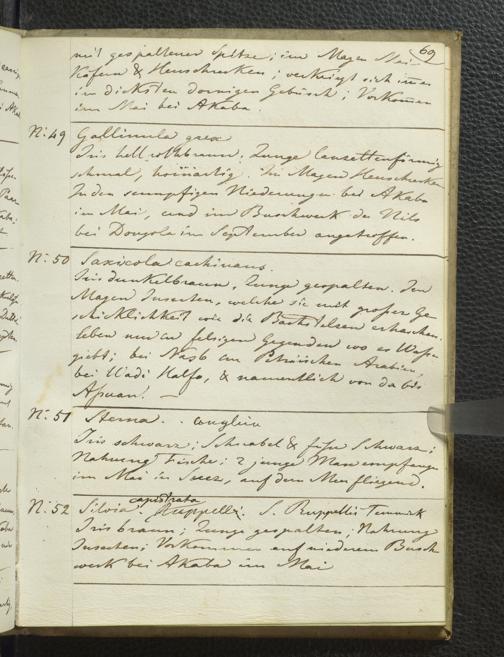 69
mit gespaltener Spitze; im Magen
Käfern & Heuschrecken; verkriegt sich
im dicksten dornigen Gebüsch; Vorkommen
im Mai bei Akaba.
N: 49 Gallinula grex
Iris hell rothbraun; Zunge lanzettenförmig
schmal, hornartig. Im Magen Heuschrecken
In den sumpfigen Niederungen bei Akaba
im Mai, und im Buschwerk des Nils
bei Dongola im September angetroffen.
N: 50 Saxicola cachinans.
Iris dunkelbraun, Zunge gespalten. Im
Magen Insecten, welche sie mit grosser Ge-
schicklichkeit wie die Bachstelzen erhaschen.
leben nur in felsigen Gegenden wo es Wasser
giebt; bei Nasb im Peträischen Arabien,
bei Wadi Halfa, & namentlich von da bis
Assuan. —
N: 51 Sterna. anglica
Iris schwarz; Schnabel & Füsse Schwarz;
Nahrung Fische; 2 junge
im Mai in Suez, auf dem Meer fliegend.
N: 52 Silvia capistrata Rueppelli. S. Ruppellii Temmink
Iris braun, Zunge gespalten, Nahrung
Insecten; Vorkommen auf niederem Busch
werk bei Akaba im Mai